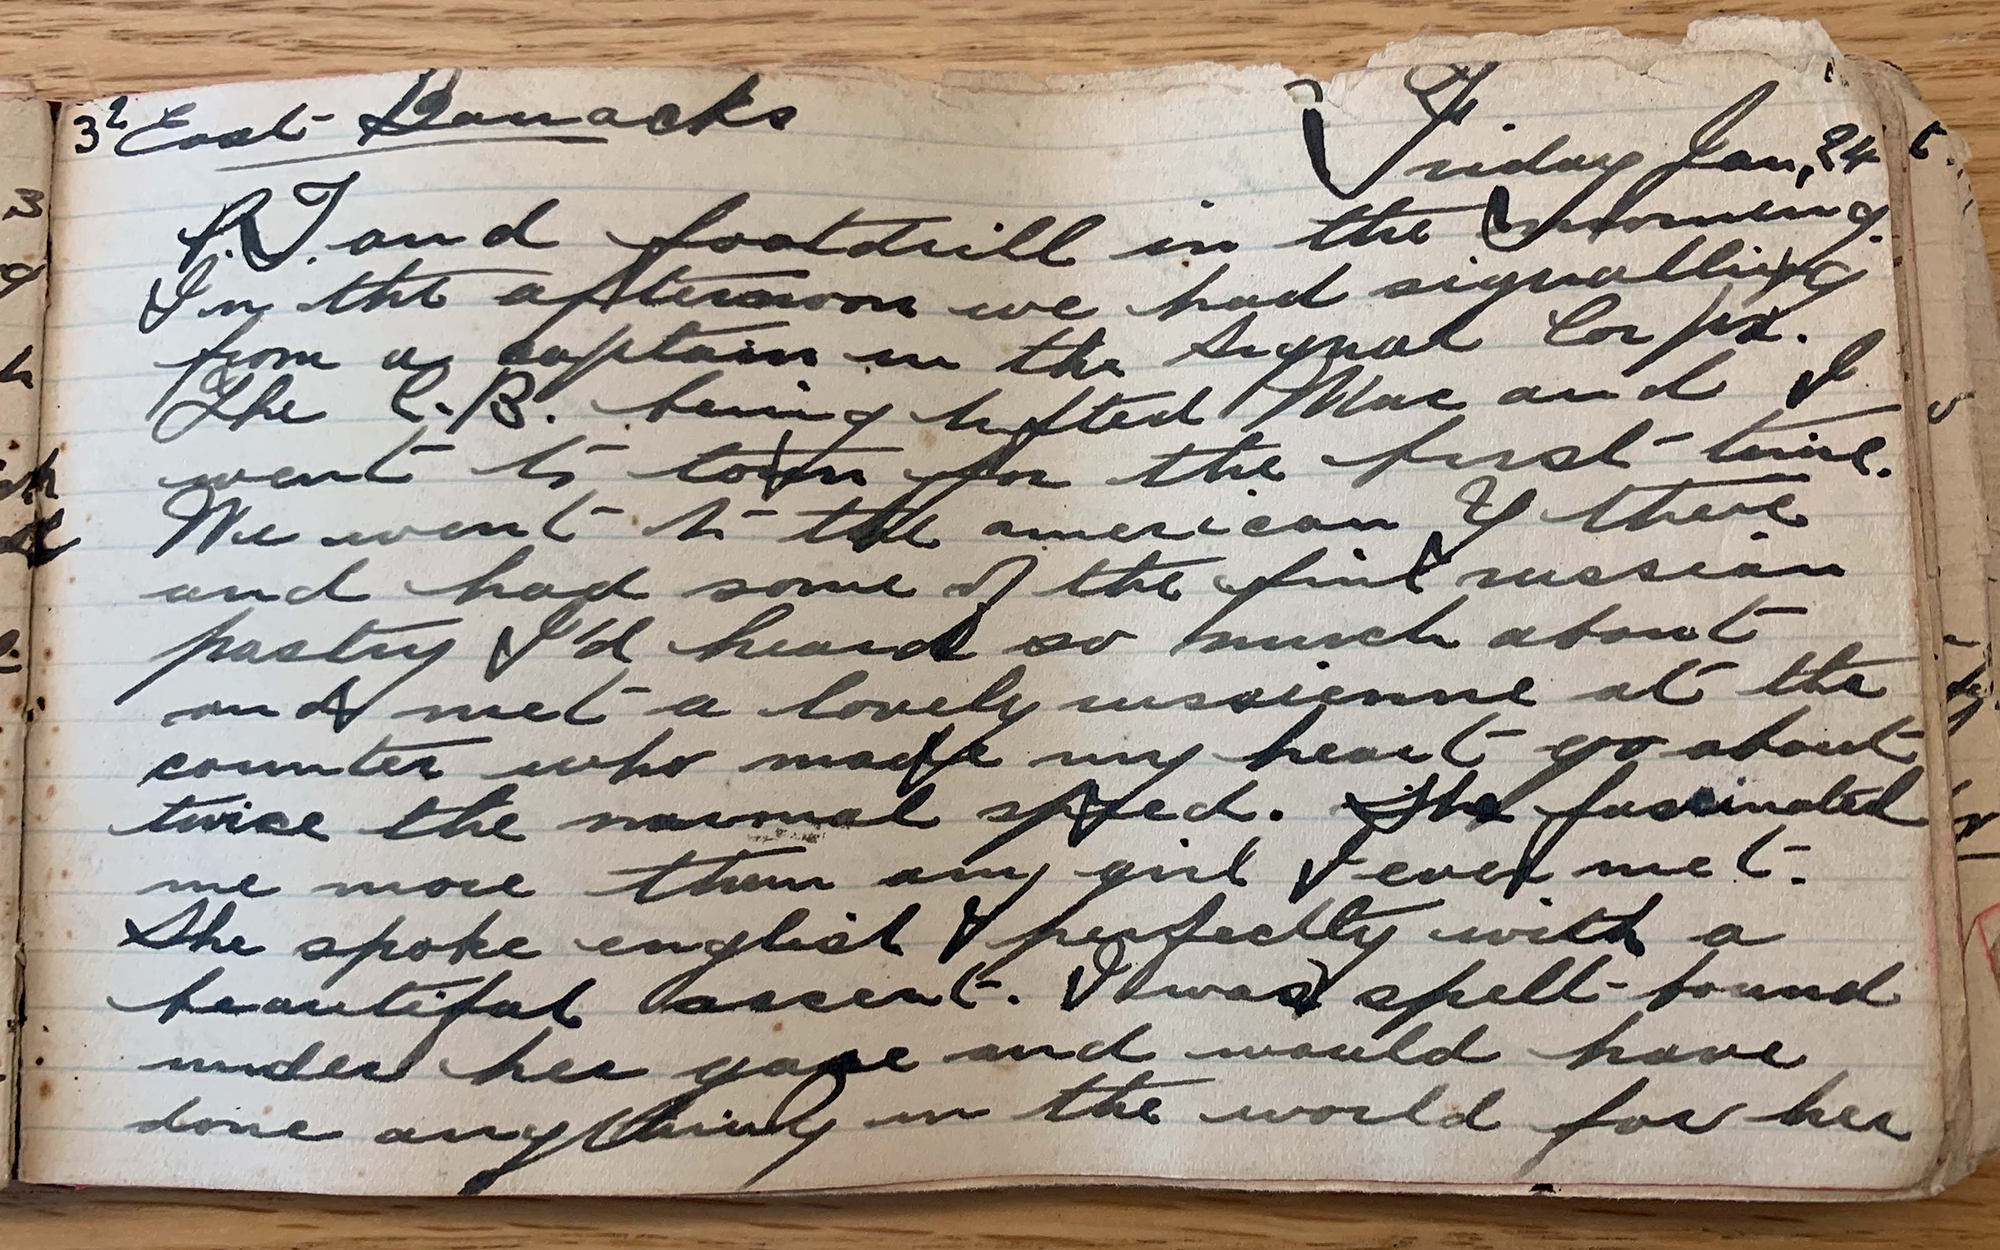 32 East Barracks
Friday Jan, 24
P.T. and footdrill in the morning.
In the afternoon we had signalling
from a captain in the Signal Corps.
The C.B. being lifted Mac and I
went to town for the first time.
We went to the american Y there
and had some of the fine russian
pastry I'd heard so much about
and met a lovely russienne at the
counter who made my heart go about
twice the normal speed. She fascinated
me more than any girl I ever met.
She spoke english perfectly with a
beautiful accent. I was spell-bound
under her gaze and would have
done anything in the world for her